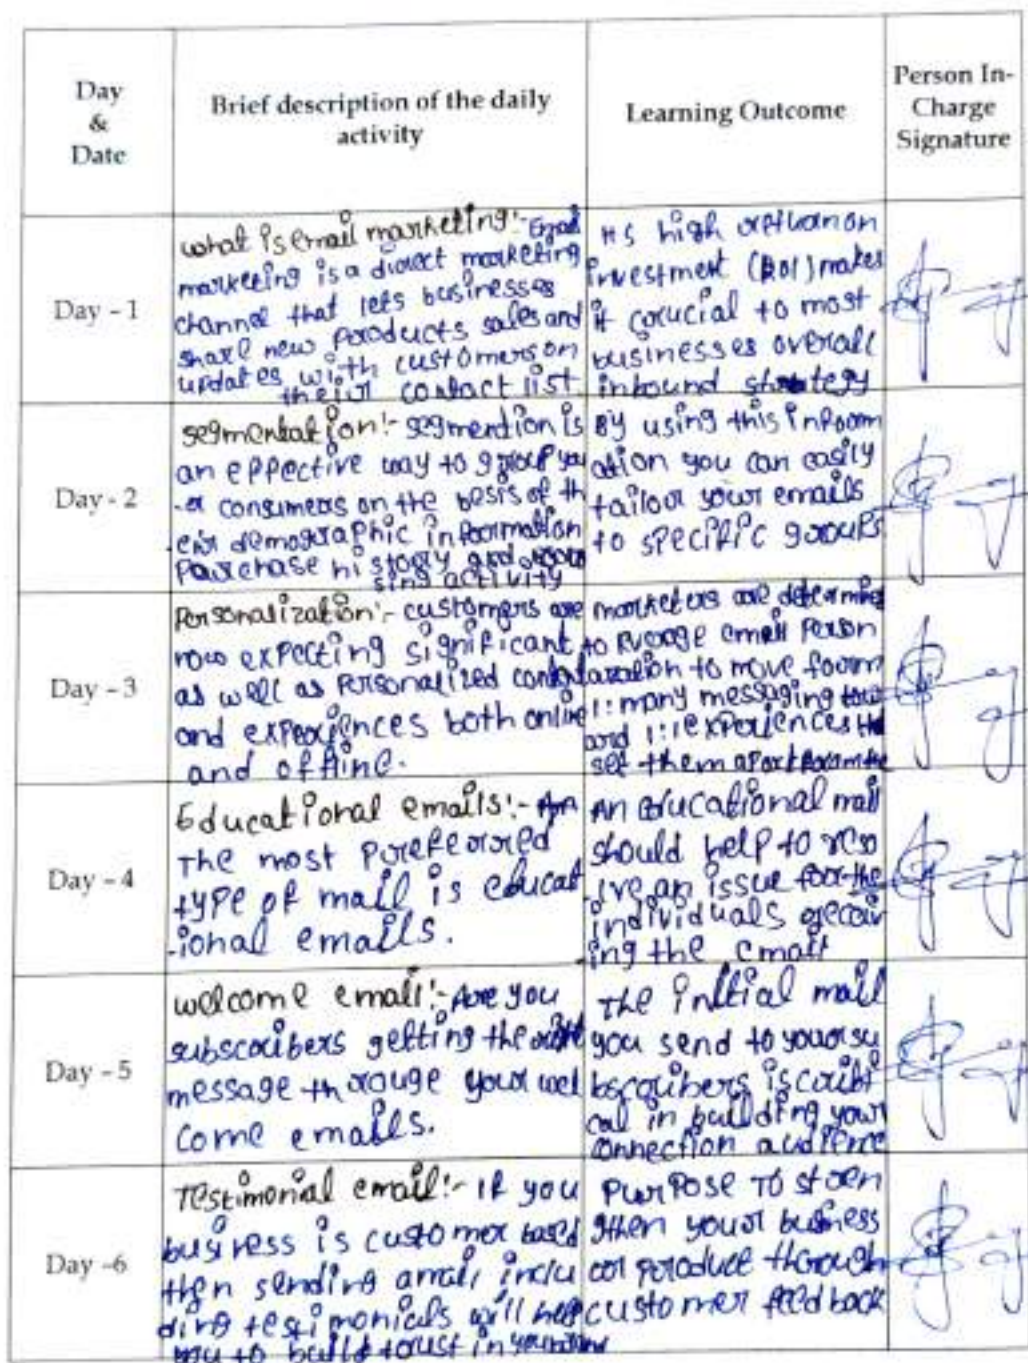 Day
&
Date
Brief description of the daily
activity
Learning Outcome
Person In-
Charge
Signature
Day - 1
what is email marketing:- Email
marketing is a direct marketing
channel that lets businesses
share new products sales and
updates with customers on
their contact list
Its high return on
investment (ROI) makes
it crucial to most
businesses overall
inbound strategy
Day - 2
segmentation:- segmention is
an effective way to group you
-r consumers on the besis of th
eir demographic information
Purchase history and
sing activity
By using this inform
ation you can easily
tailor your emails
to specific groups
Day - 3
Personalization:- customers are
now expecting significant
as well as Personalized
and experiences both online
and offline.
marketers are
to email Person
to move form
1: many messaging
and 1:1 experiences
set them apart from the
Day - 4
Educational emails:-
The most preferred
type of mail is educat
-ional emails.
An educational mail
should help to reso
lve an issue for the
individuals recei
ing the email
Day - 5
welcome email:- Are you
subscribers getting the right
message through your wel
come emails.
The initial mail
you send to your su
bscribers is criti
cal in building your
connection audience
Day -6
Testimonial email:- If you
business is customer based
then sending amail inclu
ding testimonials will help
you to build trust in
Purpose To stren
gthen your business
or produce through
customer feedback